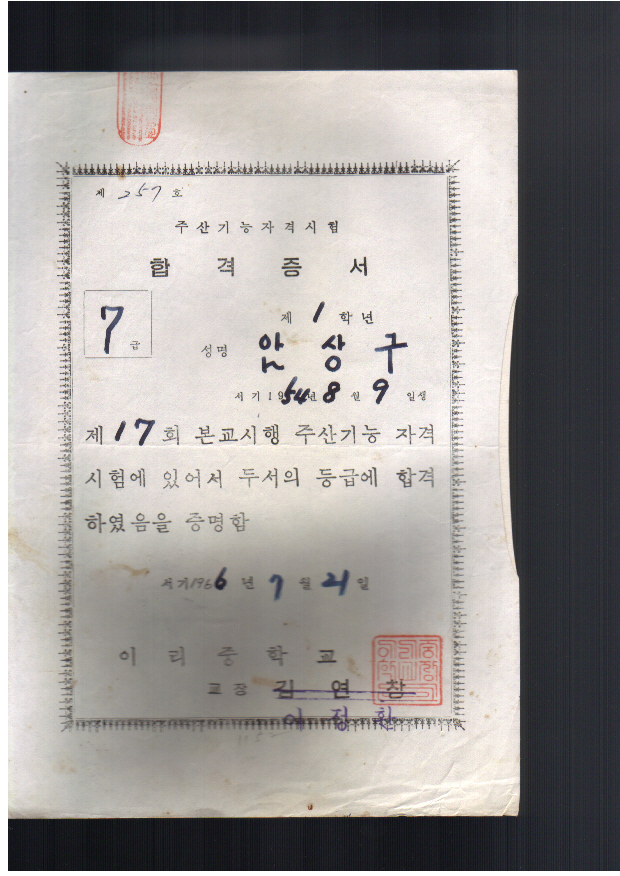 제 257 호
주산기능자격시험
합격증서
7급
제 1 학년
성명 안상구
서기 1954년 8월 9일생
제17회 본교시행 주산기능 자격
시험에 있어서 두서의 등급에 합격
하였음을 증명함
서기1966년 7월 21일
이리중학교
교장 김연창
이정환